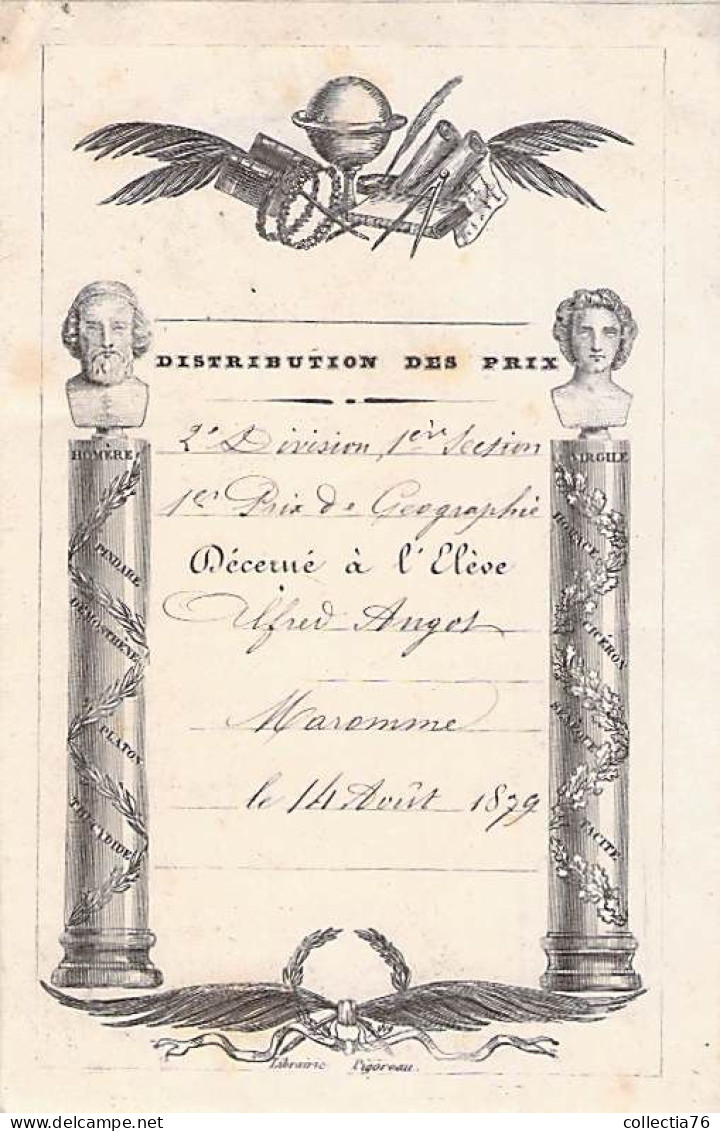 DISTRIBUTION DES PRIX
2e Division 1ère Section
1er Prix de Geographie
Décerné à l'Elève
Alfred Angot
Maromme
le 14 Août 1879
HOMÈRE
PINDARE
DÉMOSTHÈNE
PLATON
THUCYDIDE
VIRGILE
HORACE
CICÉRON
SÉNÈQUE
TACITE
Librairie Pigoreau.
collectia76